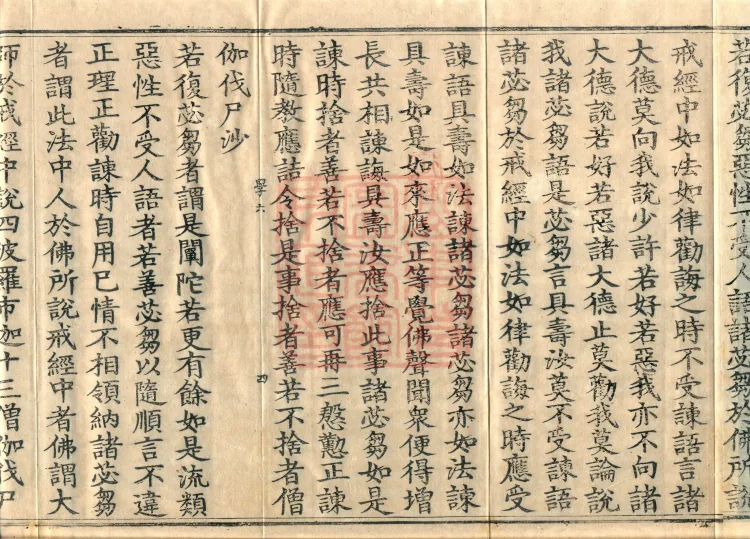 若復苾芻惡性不受人語諸苾芻於佛所說
戒經中如法如律勸誨之時不受諫語言諸
大德莫向我說少許若好若惡我亦不向諸
大德說若好若惡諸大德止莫勸我莫論說
我諸苾芻語是苾芻言具壽汝莫不受諫語
諸苾芻於戒經中如法如律勸誨之時應受
諫語具壽如法諫諸苾芻諸苾芻亦如法諫
具壽如是如來應正等覺佛聲聞衆便得增
長共相諫誨具壽汝應捨此事諸苾芻如是
諫時捨者善若不捨者應可再三慇懃正諫
時隨教應詰令捨是事捨者善若不捨者僧
學六 四
伽伐尸沙
若復苾芻者謂是闡陀若更有餘如是流類
惡性不受人語者若善苾芻以隨順言不違
正理正勸諫時自用己情不相領納諸苾芻
者謂此法中人於佛所說戒經中者佛謂大
師於戒經中說四波羅市迦十三僧伽伐尸